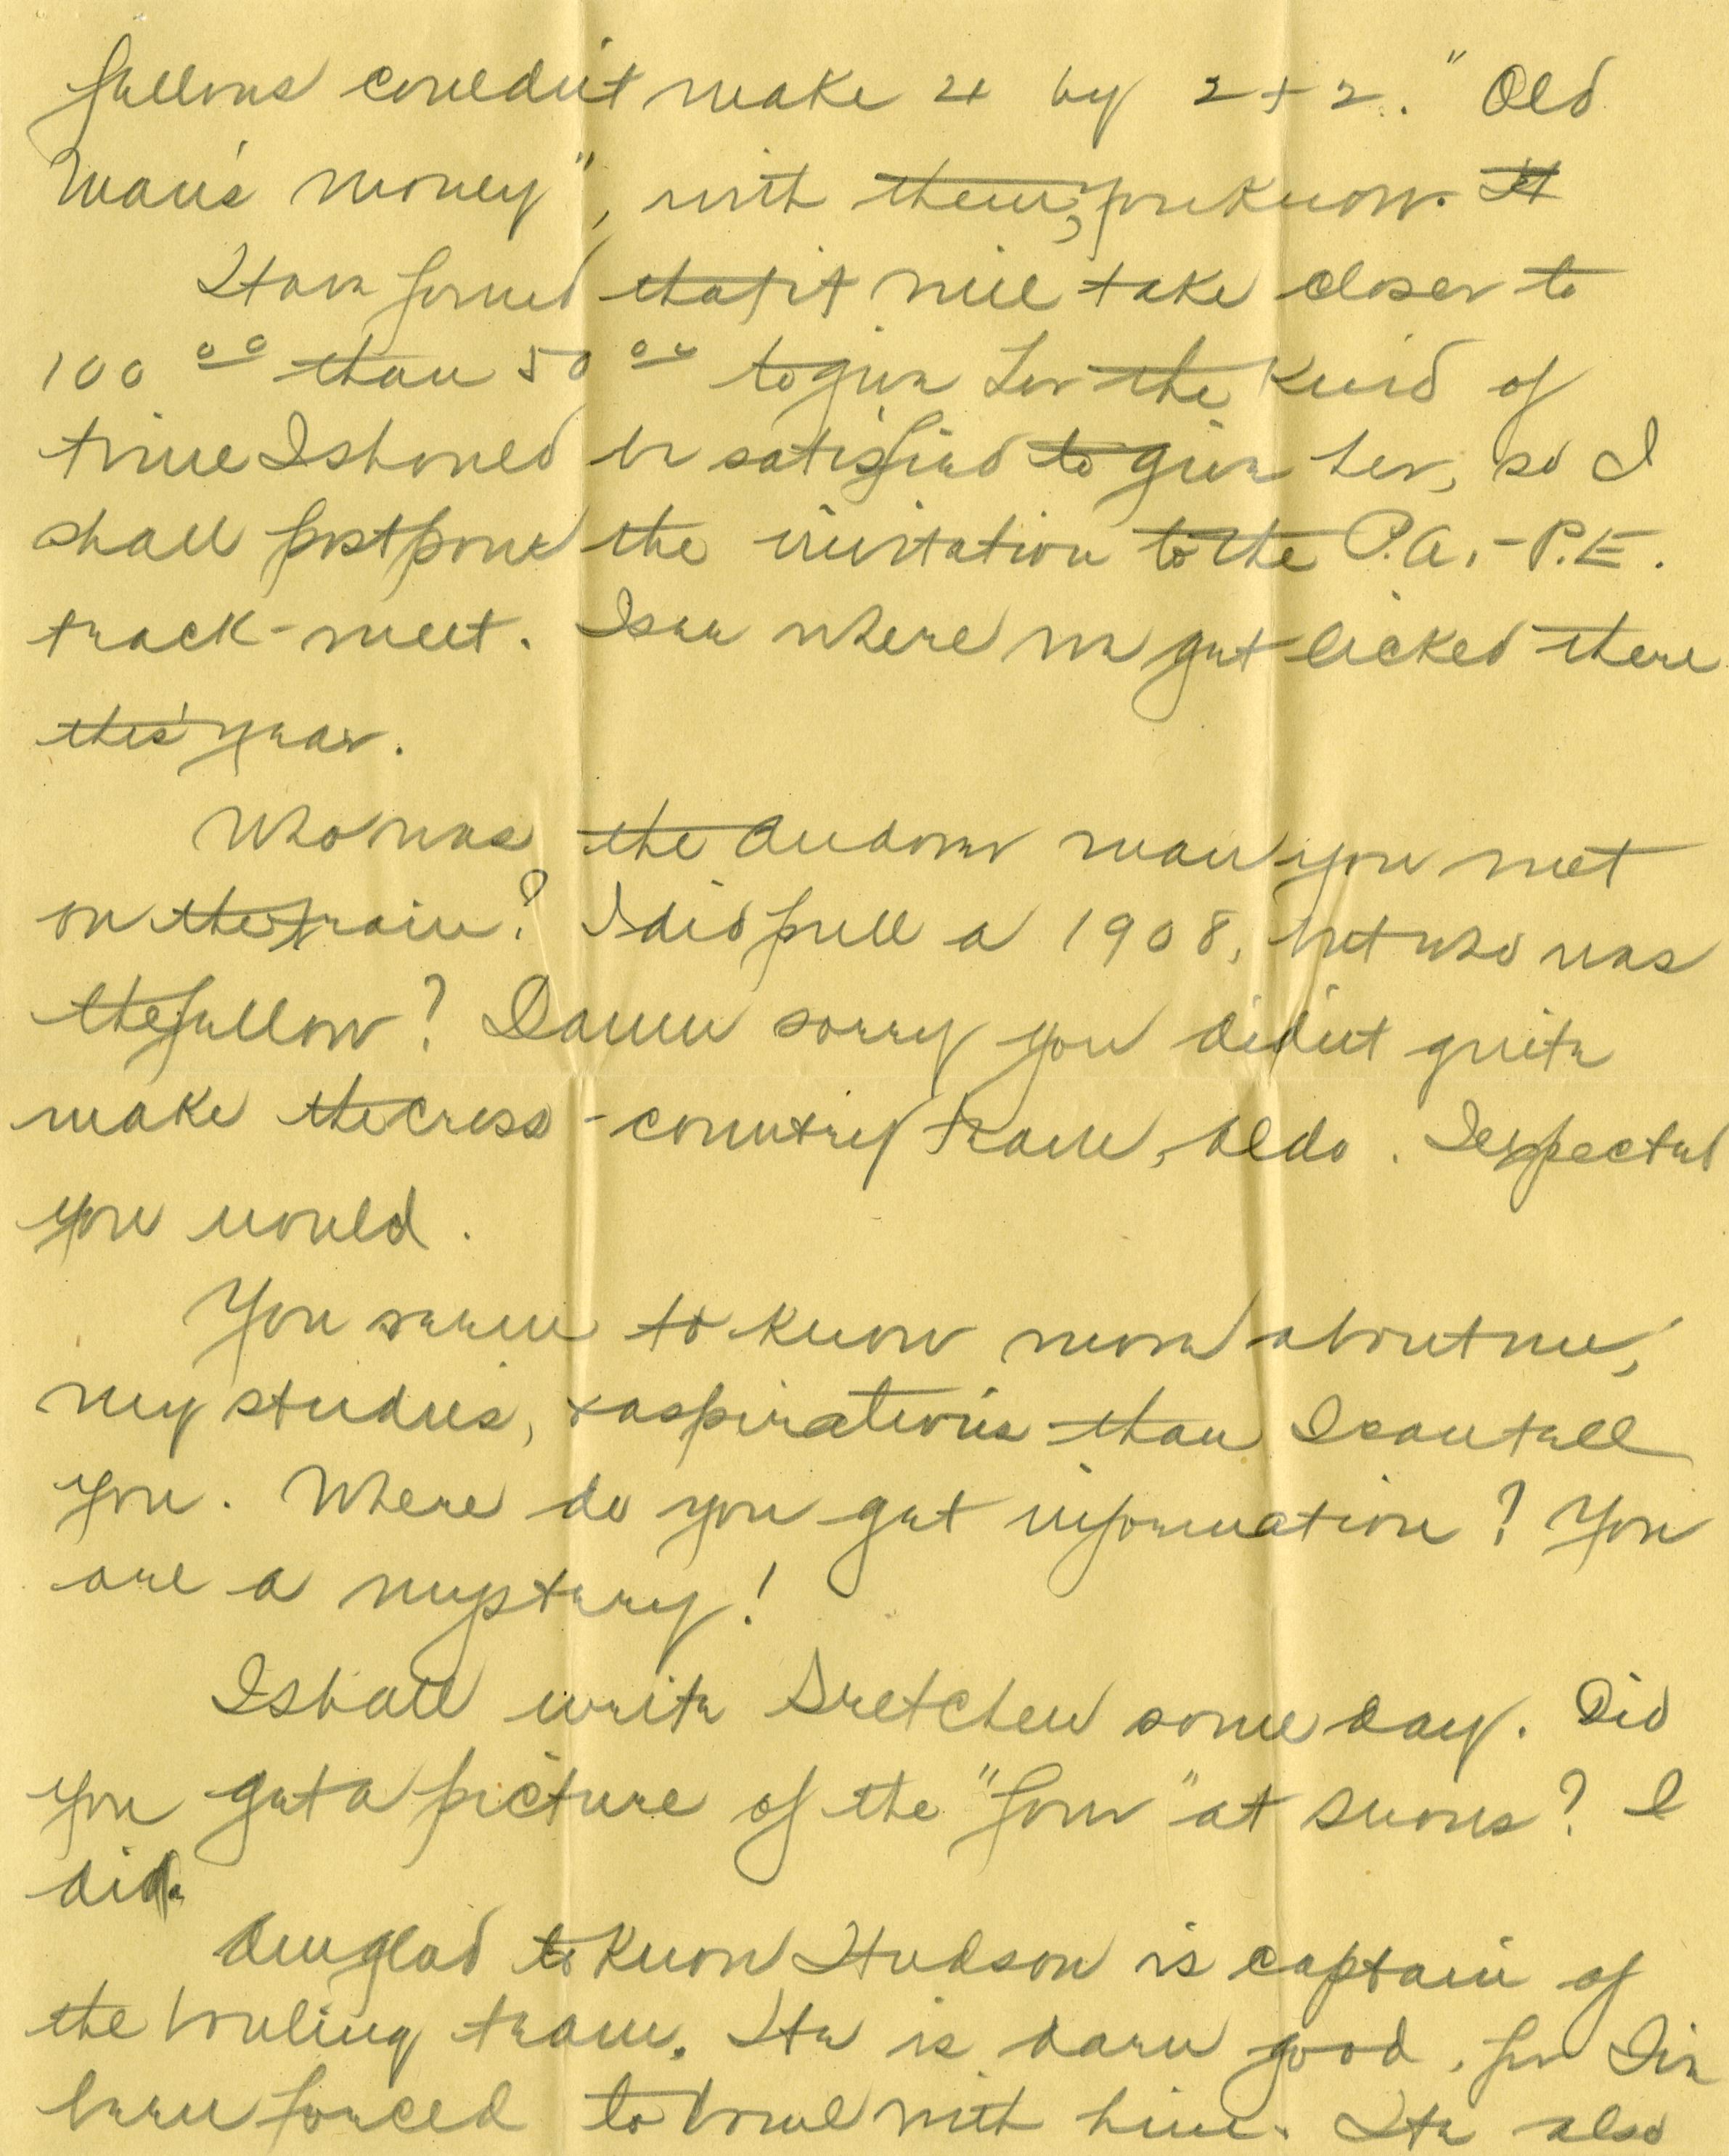 fellows couldn't make 4 by 2+2. "Old
Man's money", with them, you know. It
Have found that it will take closer to
100 00 than 50 00 to give her the kind of
time I should be satisfied to give her, so I
shall postpone the invitation to the P.A.-P.E.
track-meet. I see where we get licked there
this year.
Who was the Andover man you met
on the train? I did pull a 1908, but who was
the fellow? Damn sorry you didn't quite
make the cross-country team, Aldo. I expected
you would.
You seem to know more about me,
my studies, & aspirations than I can tell
you. Where do you get information? You
are a mystery!
I shall write Gretchen some day. Did
you get a picture of the "four" at Snows? I
did.
Am glad to know Hudson is captain of
the bowling team. He is darn good, for I've
been forced to bowl with him. He also